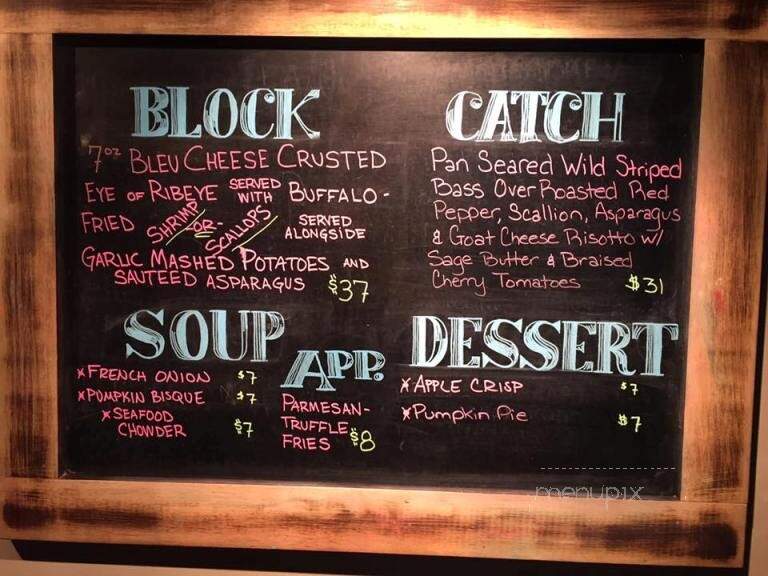 BLOCK
7oz BLEU CHEESE CRUSTED
EYE OF RIBEYE SERVED WITH BUFFALO-
FRIED SHRIMP -OR- SCALLOPS SERVED ALONGSIDE
GARLIC MASHED POTATOES AND
SAUTEED ASPARAGUS $37
CATCH
Pan Seared Wild Striped
Bass Over Roasted Red
Pepper, Scallion, Asparagus
& Goat Cheese Risotto w/
Sage Butter & Braised
Cherry Tomatoes $31
SOUP
*FRENCH ONION $7
*PUMPKIN BISQUE $7
*SEAFOOD
CHOWDER $7
APP.
PARMESAN-
TRUFFLE
FRIES $8
DESSERT
*APPLE CRISP $7
*Pumpkin Pie $7
menupix